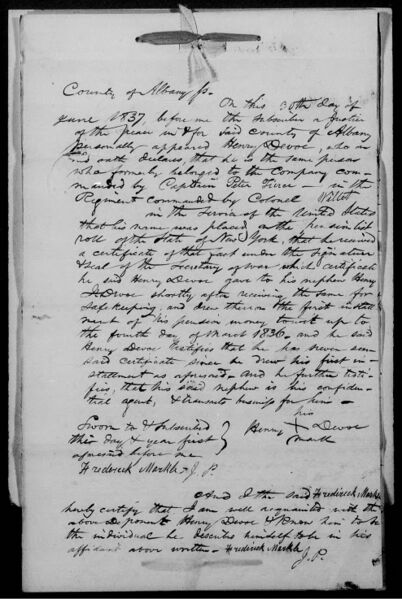 County of Albany ss.
On this 30th Day of
June 1837, before me the Subscriber a Justice
of the peace in & for said County of Albany
personally appeared Henry Devoe, who on
oath declares, that he is the same person
who formerly belonged to the Company com-
manded by Captain Peter in the
Regiment commanded by Colonel Willet
in the Service of the United States
that his name was placed on the pension list
roll of the State of New York, that he received
a certificate of that fact under the signature
& seal of the Secretary of war which certificate
he said Henry Devoe gave to his nephew Henry
Devoe shortly after receiving the same for
safe keeping, and drew thereon the first install
ment of his pension money to wit up to
the fourth day of March 1836 and he said
Henry Devoe testifies that he has never seen
said certificate since he drew his first in-
stallment as aforesaid. And he further testi-
fies, that his said nephew is his confiden-
tial agent, & transacts business for him
Sworn to & Subscribed
this day & year first
aforesaid before me
Frederick Markle J. P.
his
Henry X Devoe
mark
And I the said Frederick Markle
hereby certify that I am well acquainted with the
above Deponent Henry Devoe & know him to be
the individual he describes himself to be in his
affidavit above written - Frederick Markle
J. P.